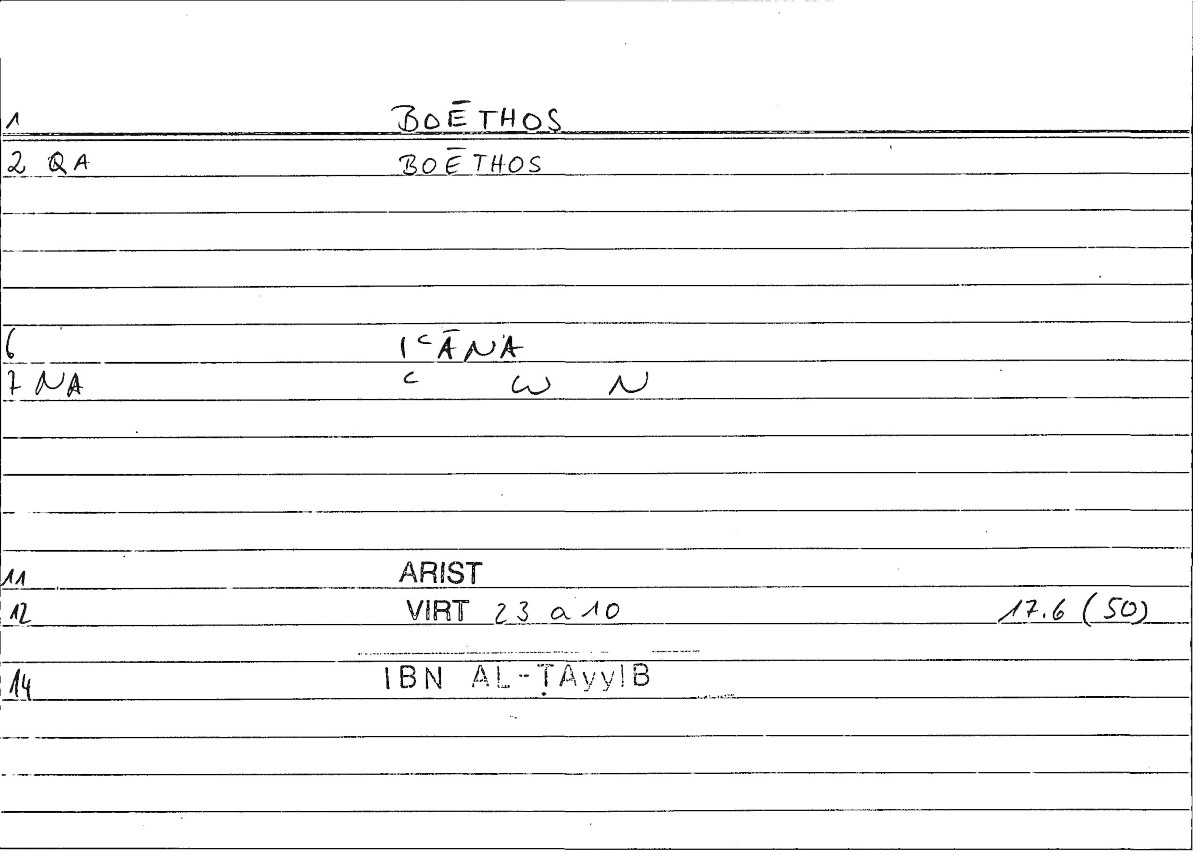 1 BOĒTHOS
2 QA BOĒTHOS
6 IʿĀNA
7 NA ʿ W N
11 ARIST
12 VIRT 23 a 10 17.6 (50)
14 IBN AL-ṬAyyIB